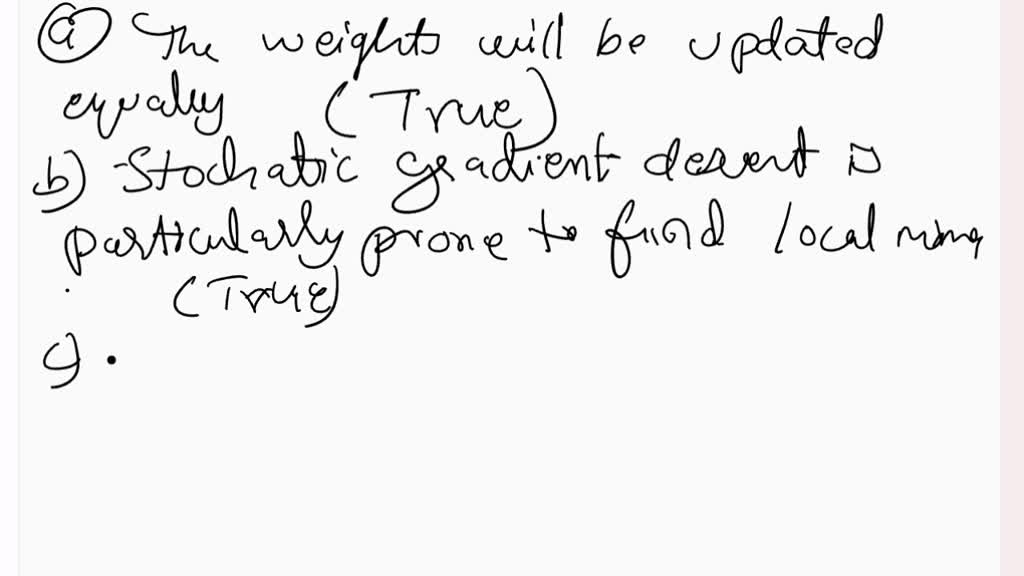 a) The weights will be updated
equally (True)
b) Stochatic gradient descent is
particularly prone to find local mima
(True)
c) .